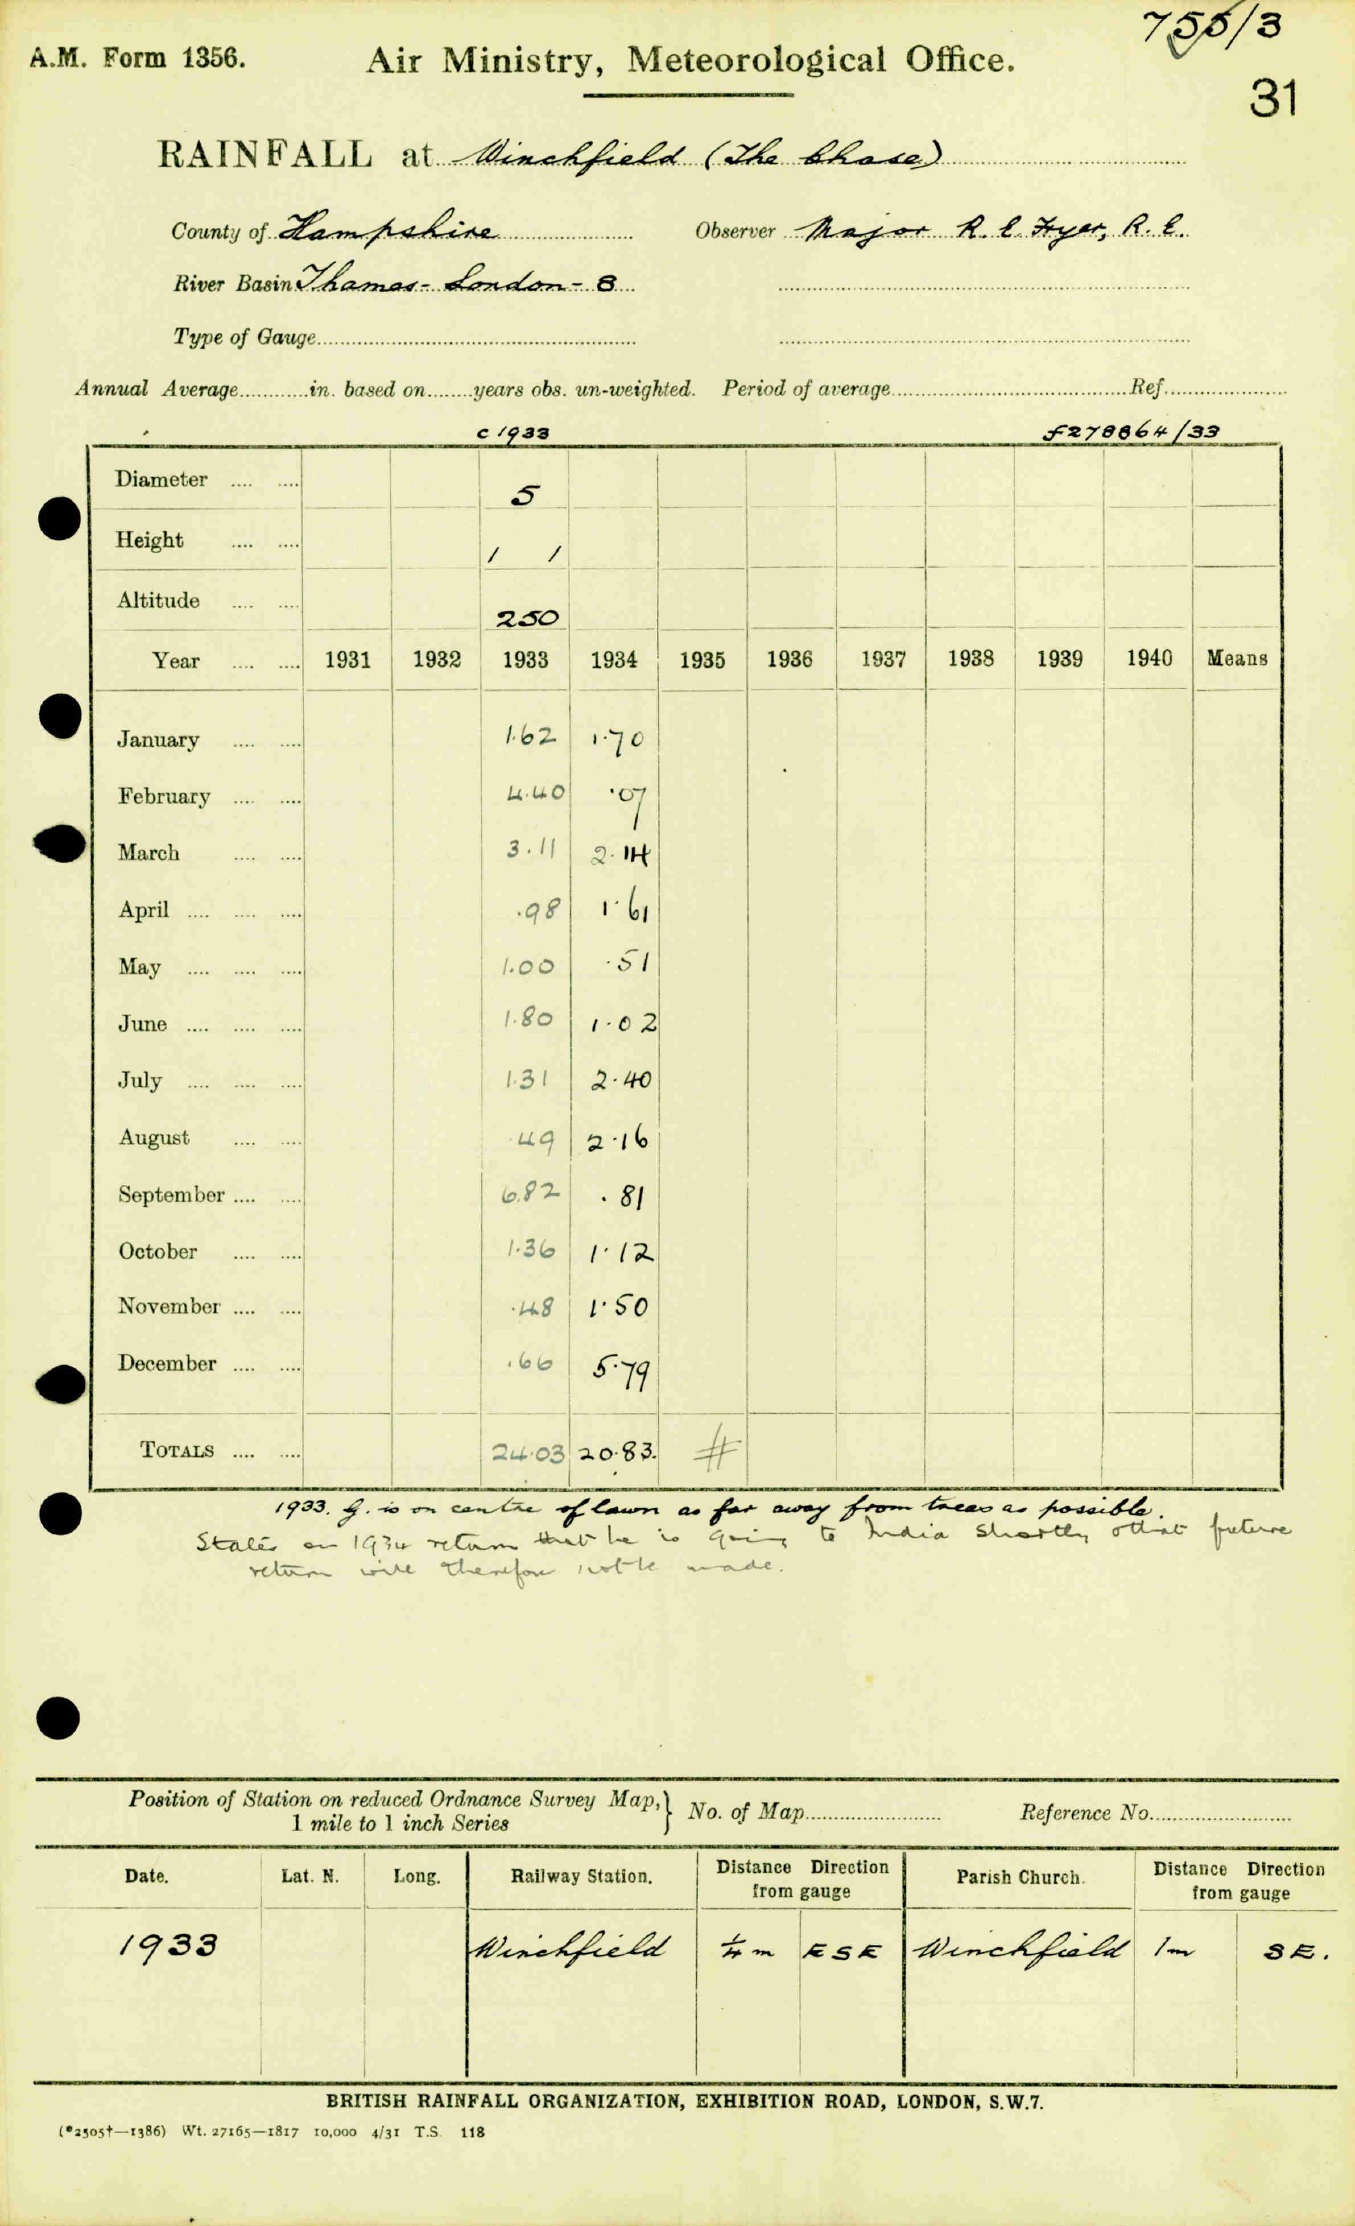 755/3
A.M. Form 1356. Air Ministry, Meteorological Office.
31
RAINFALL at Winchfield (The Chase)
County of Hampshire Observer Major R. E. Fryer, R. E.
River Basin Thames - London - 8
Type of Gauge
Annual Average in. based on years obs. un-weighted. Period of average Ref.
c 1933 F278864/33
Diameter 5
Height 1 1
Altitude 250
Year 1931 1932 1933 1934 1935 1936 1937 1938 1939 1940 Means
January 1.62 1.70
February 4.40 .07
March 3.11 2.14
April .98 1.61
May 1.00 .51
June 1.80 1.02
July 1.31 2.40
August .49 2.16
September 6.82 .81
October 1.36 1.12
November .48 1.50
December .66 5.79
TOTALS 24.03 20.83. #
1933. G. is on centre of lawn as far away from trees as possible.
States on 1934 return that he is going to India shortly & that future
return will therefore not be made.
Position of Station on reduced Ordnance Survey Map, } No. of Map Reference No.
1 mile to 1 inch Series
Date. Lat. N. Long. Railway Station. Distance Direction from gauge Parish Church. Distance Direction from gauge
1933 Winchfield ¼ m ESE Winchfield 1m SE.
BRITISH RAINFALL ORGANIZATION, EXHIBITION ROAD, LONDON, S.W.7.
(*2505†—1386) Wt. 27165—1817 10,000 4/31 T.S. 118